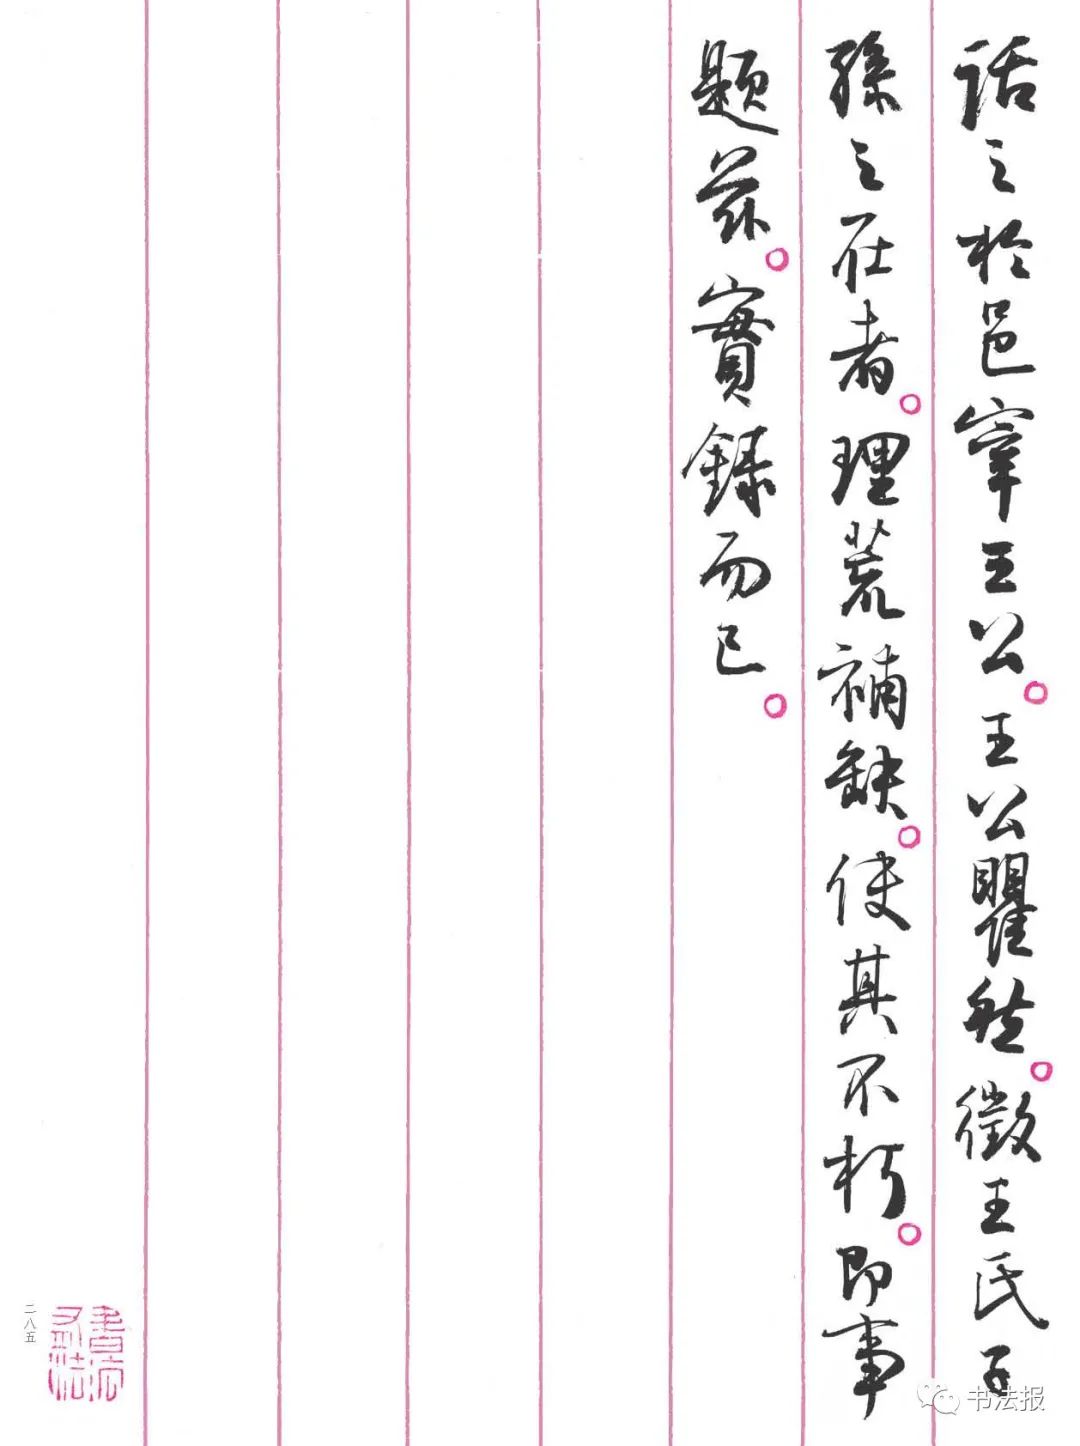 話之於邑宰王公。王公瞿然。徵王氏子
孫之在者。理荒補缺。使其不朽。即事
題茲。實錄而已。
二八五
书法报